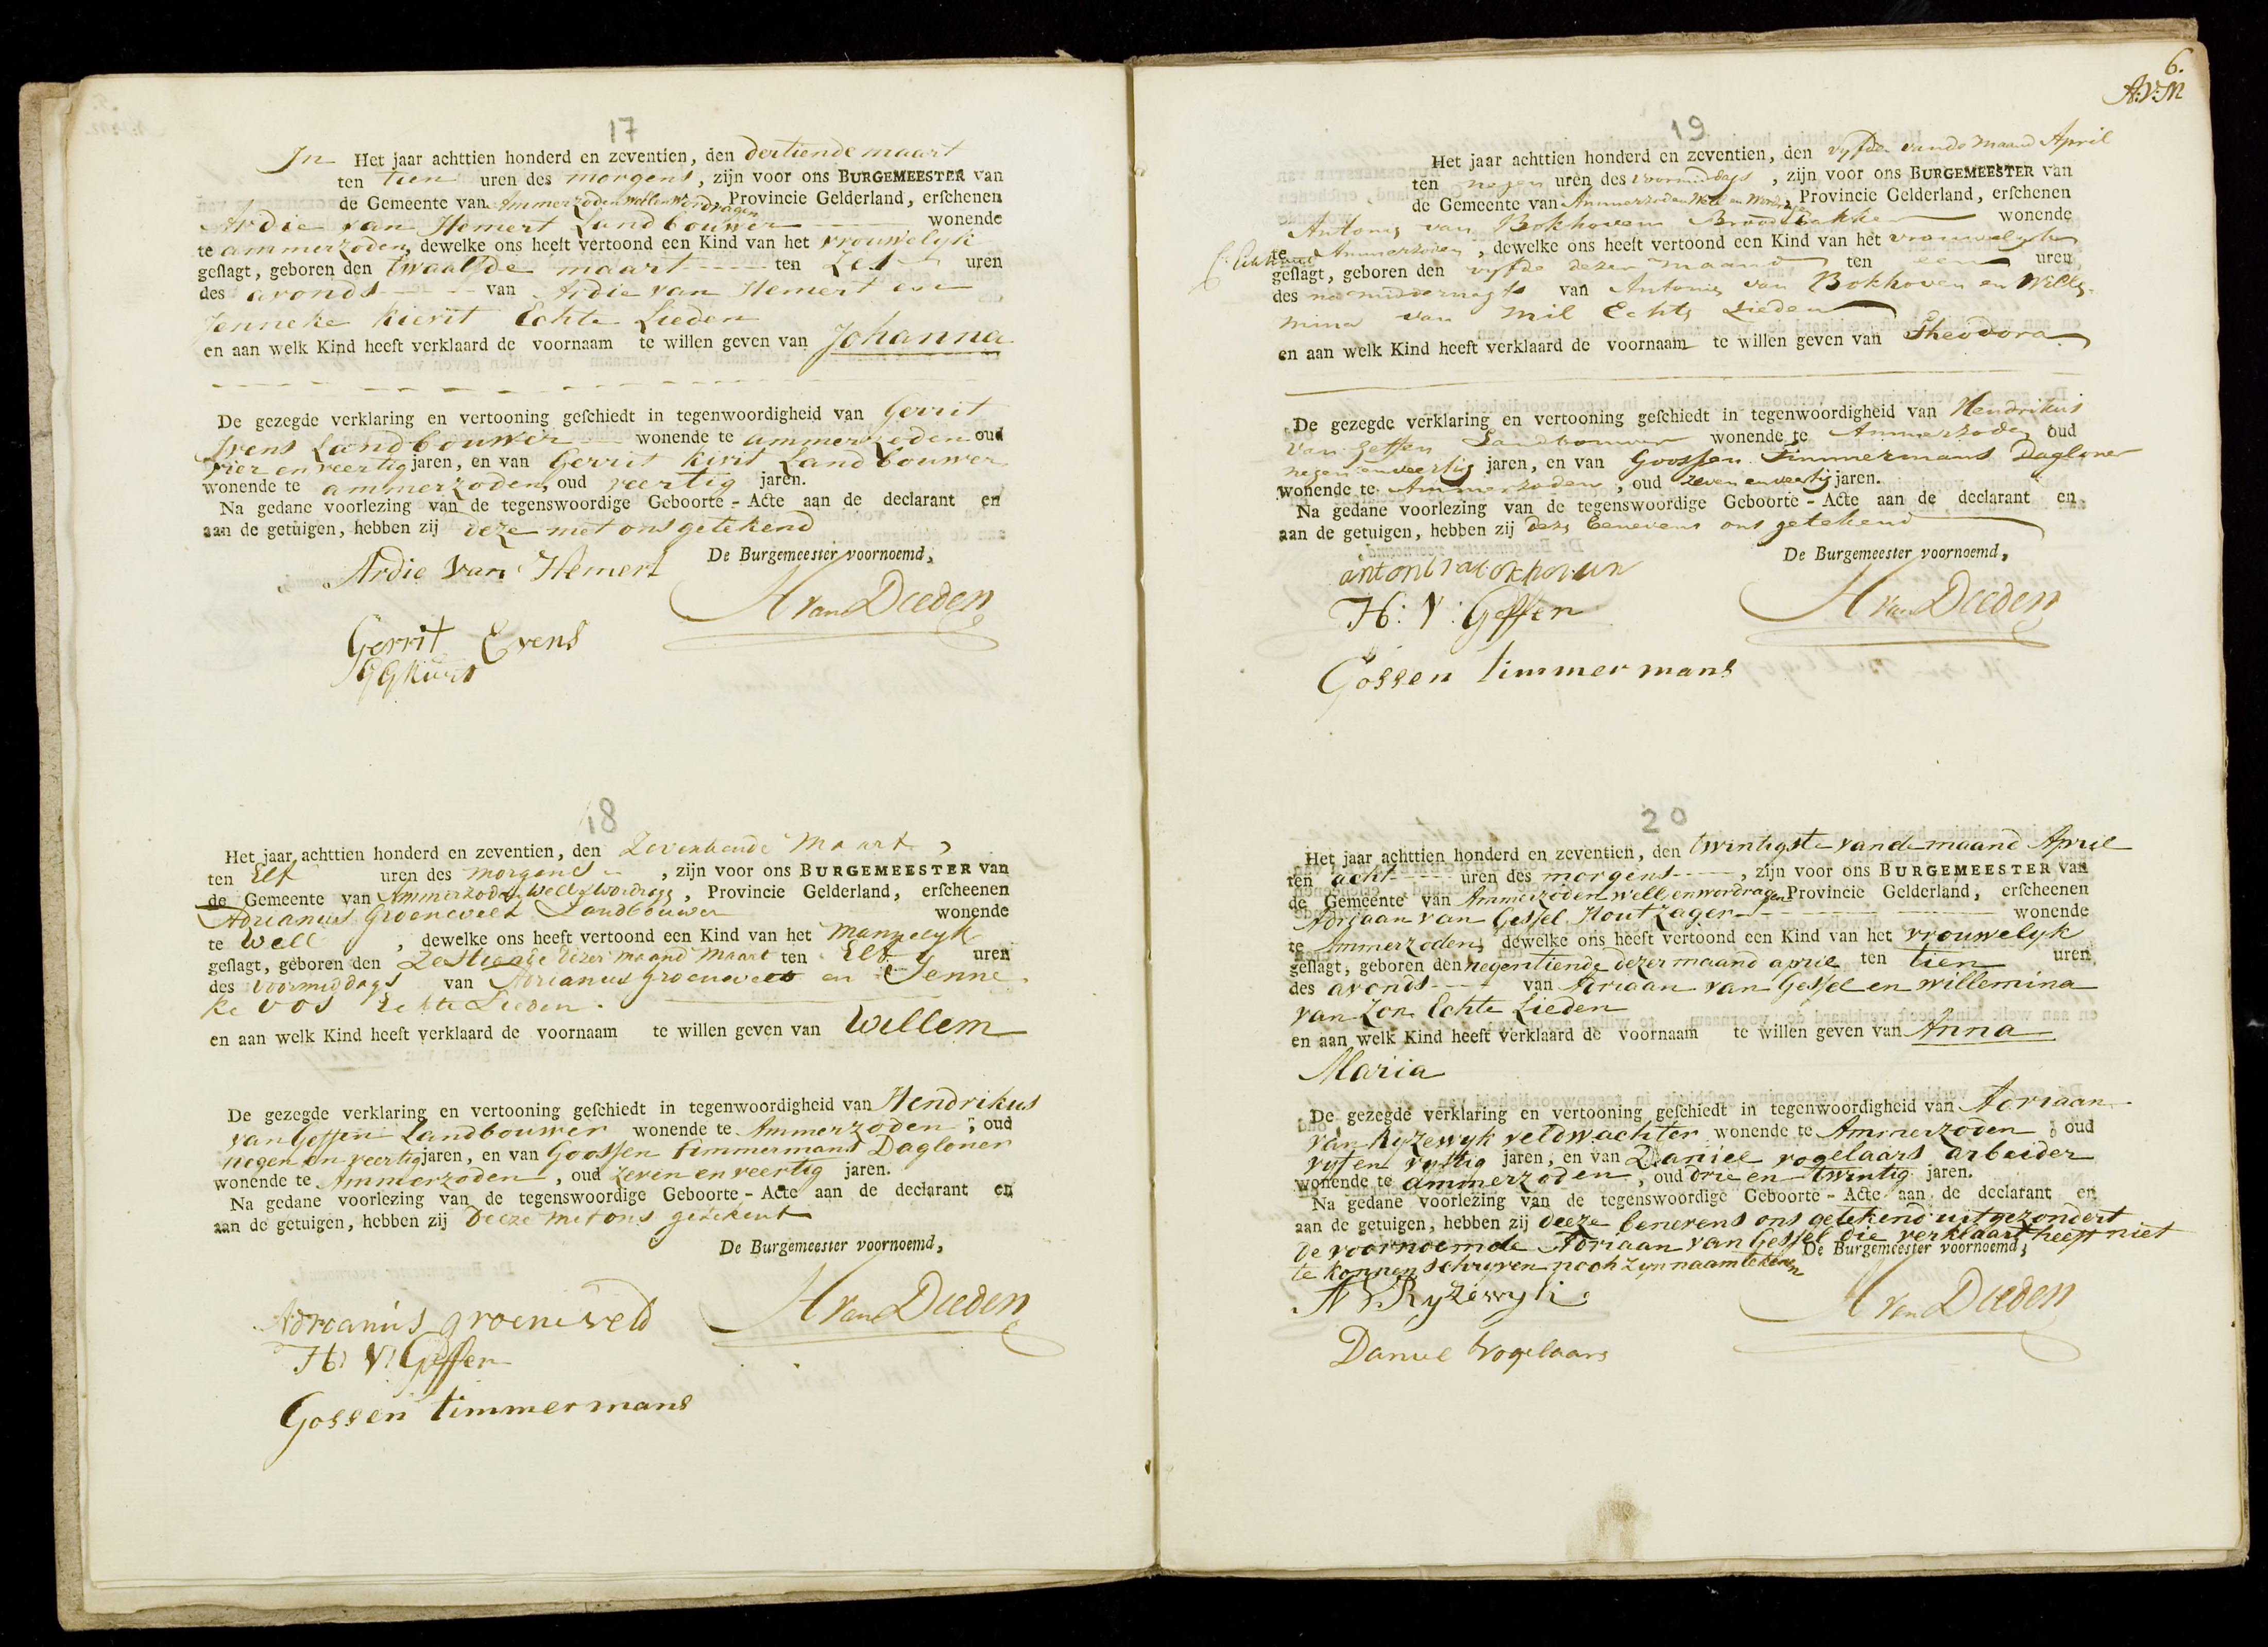 17
In Het jaar achttien honderd en zeventien, den dertiende maart
ten tien uren des morgens, zijn voor ons BURGEMEESTER van
de Gemeente van Ammerzoden Well en Wordragen Provincie Gelderland, erfchenen
Ardie van Hemert Landbouwer wonende
te ammerzoden, dewelke ons heeft vertoond een Kind van het vrouwelyk
geflagt, geboren den twaalfde maart ten Zes uren
des avonds van Ardie van Hemert en
Jenneke Kievit Echte Lieden
en aan welk Kind heeft verklaard de voornaam te willen geven van Johanna
De gezegde verklaring en vertooning gefchiedt in tegenwoordigheid van Gerrit
Ivens Landbouwer wonende te ammerzoden oud
vier en veertig jaren, en van Gerrit Kivit Landbouwer
wonende te ammerzoden, oud veertig jaren.
Na gedane voorlezing van de tegenswoordige Geboorte-Acte aan de declarant en
aan de getuigen, hebben zij deze met ons getekend
De Burgemeester voornoemd,
Ardie van Hemert
H van Deeden
Gerrit Evens
18
Het jaar achttien honderd en zeventien, den Zeventiende Maart,
ten Elf uren des morgens, zijn voor ons BURGEMEESTER van
de Gemeente van Ammerzoden Well Wordragen, Provincie Gelderland, erfcheenen
Adrianus Groeneveld Landbouwer wonende
te Well, dewelke ons heeft vertoond een Kind van het Mannelyk
geflagt, geboren den Zestiende dezer maand Maart ten Elf uren
des voormiddags van Adrianus Groeneveld en Jenne
ke Vos Echte Lieden.
en aan welk Kind heeft verklaard de voornaam te willen geven van Willem
De gezegde verklaring en vertooning gefchiedt in tegenwoordigheid van Hendrikus
van Geffen Landbouwer wonende te Ammerzoden, oud
negen en veertig jaren, en van Goossen Timmermans Dagloner
wonende te Ammerzoden, oud zeven en veertig jaren.
Na gedane voorlezing van de tegenswoordige Geboorte-Acte aan de declarant en
aan de getuigen, hebben zij Deeze met ons getekent
De Burgemeester voornoemd,
Adrianus groeneveld
H van Deeden
H: V: Geffen
Gossen timmermans
6.
A:V:M
19
Het jaar achttien honderd en zeventien, den vyfde van de maand April
ten negen uren des voormiddags, zijn voor ons BURGEMEESTER van
de Gemeente van Ammerzoden Well en Wordragen Provincie Gelderland, erfchenen
Antony van Bokhoven Broodbakker wonende
te Ammerzoden, dewelke ons heeft vertoond een Kind van het vrouwelyk
geflagt, geboren den vyfde dezer maand ten een uren
des na middernagts van Antony van Bokhoven en Willy-
mina van Mil Echte Lieden
en aan welk Kind heeft verklaard de voornaam te willen geven van Theodora
De gezegde verklaring en vertooning gefchiedt in tegenwoordigheid van Hendrikus
van Geffen Landbouwer wonende te Ammerzoden oud
negen en veertig jaren, en van Goossen Timmermans Dagloner
wonende te Ammerzoden, oud zeven en veertig jaren.
Na gedane voorlezing van de tegenswoordige Geboorte-Acte aan de declarant en
aan de getuigen, hebben zij deze benevens ons getekend
De Burgemeester voornoemd,
H van Deeden
H: V: Geffen
Gossen timmermans
20
Het jaar achttien honderd en zeventien, den twintigste van de maand April
ten acht uren des morgens, zijn voor ons BURGEMEESTER van
de Gemeente van Ammerzoden Well en wordragen Provincie Gelderland, erfcheenen
Adriaan van Gessel Houtzager wonende
te Ammerzoden, dewelke ons heeft vertoond een Kind van het vrouwelyk
geflagt, geboren den negentiende dezer maand april ten tien uren
des avonds van Adriaan van Gessel en willemina
van Zon Echte Lieden
en aan welk Kind heeft verklaard de voornaam te willen geven van Anna
Maria
De gezegde verklaring en vertooning gefchiedt in tegenwoordigheid van Adriaan
van Ryzewyk veldwachter wonende te Ammerzoden, oud
vyf en vyftig jaren, en van Daniel vogelaars arbeider
wonende te ammerzoden, oud drie en twintig jaren.
Na gedane voorlezing van de tegenswoordige Geboorte-Acte aan de declarant en
aan de getuigen, hebben zij deeze benevens ons getekend uitgezondert
de voornoemde Adriaan van Gessel die verklaart heeft niet
te konnen schryven noch zyn naam tekenen
De Burgemeester voornoemd,
A V Ryzewyk
H van Deeden
Daniel Vogelaars